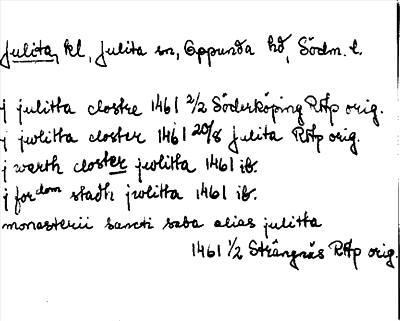 Julita, kl, Julita sn, Oppunda hd, Södm. l.
j julitta clostre 1461 2/2 Söderköping RAp orig.
j jwlitta closter 1461 20/8 Julita RAp orig.
j warth closter jwlitta 1461 ib.
j fordom stadh jwlitta 1461 ib.
monasterii sancti saba alias julitta
1461 1/2 Strängnäs RAp orig.